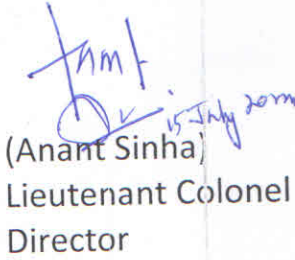 15 July
(Anant Sinha)
Lieutenant Colonel
Director